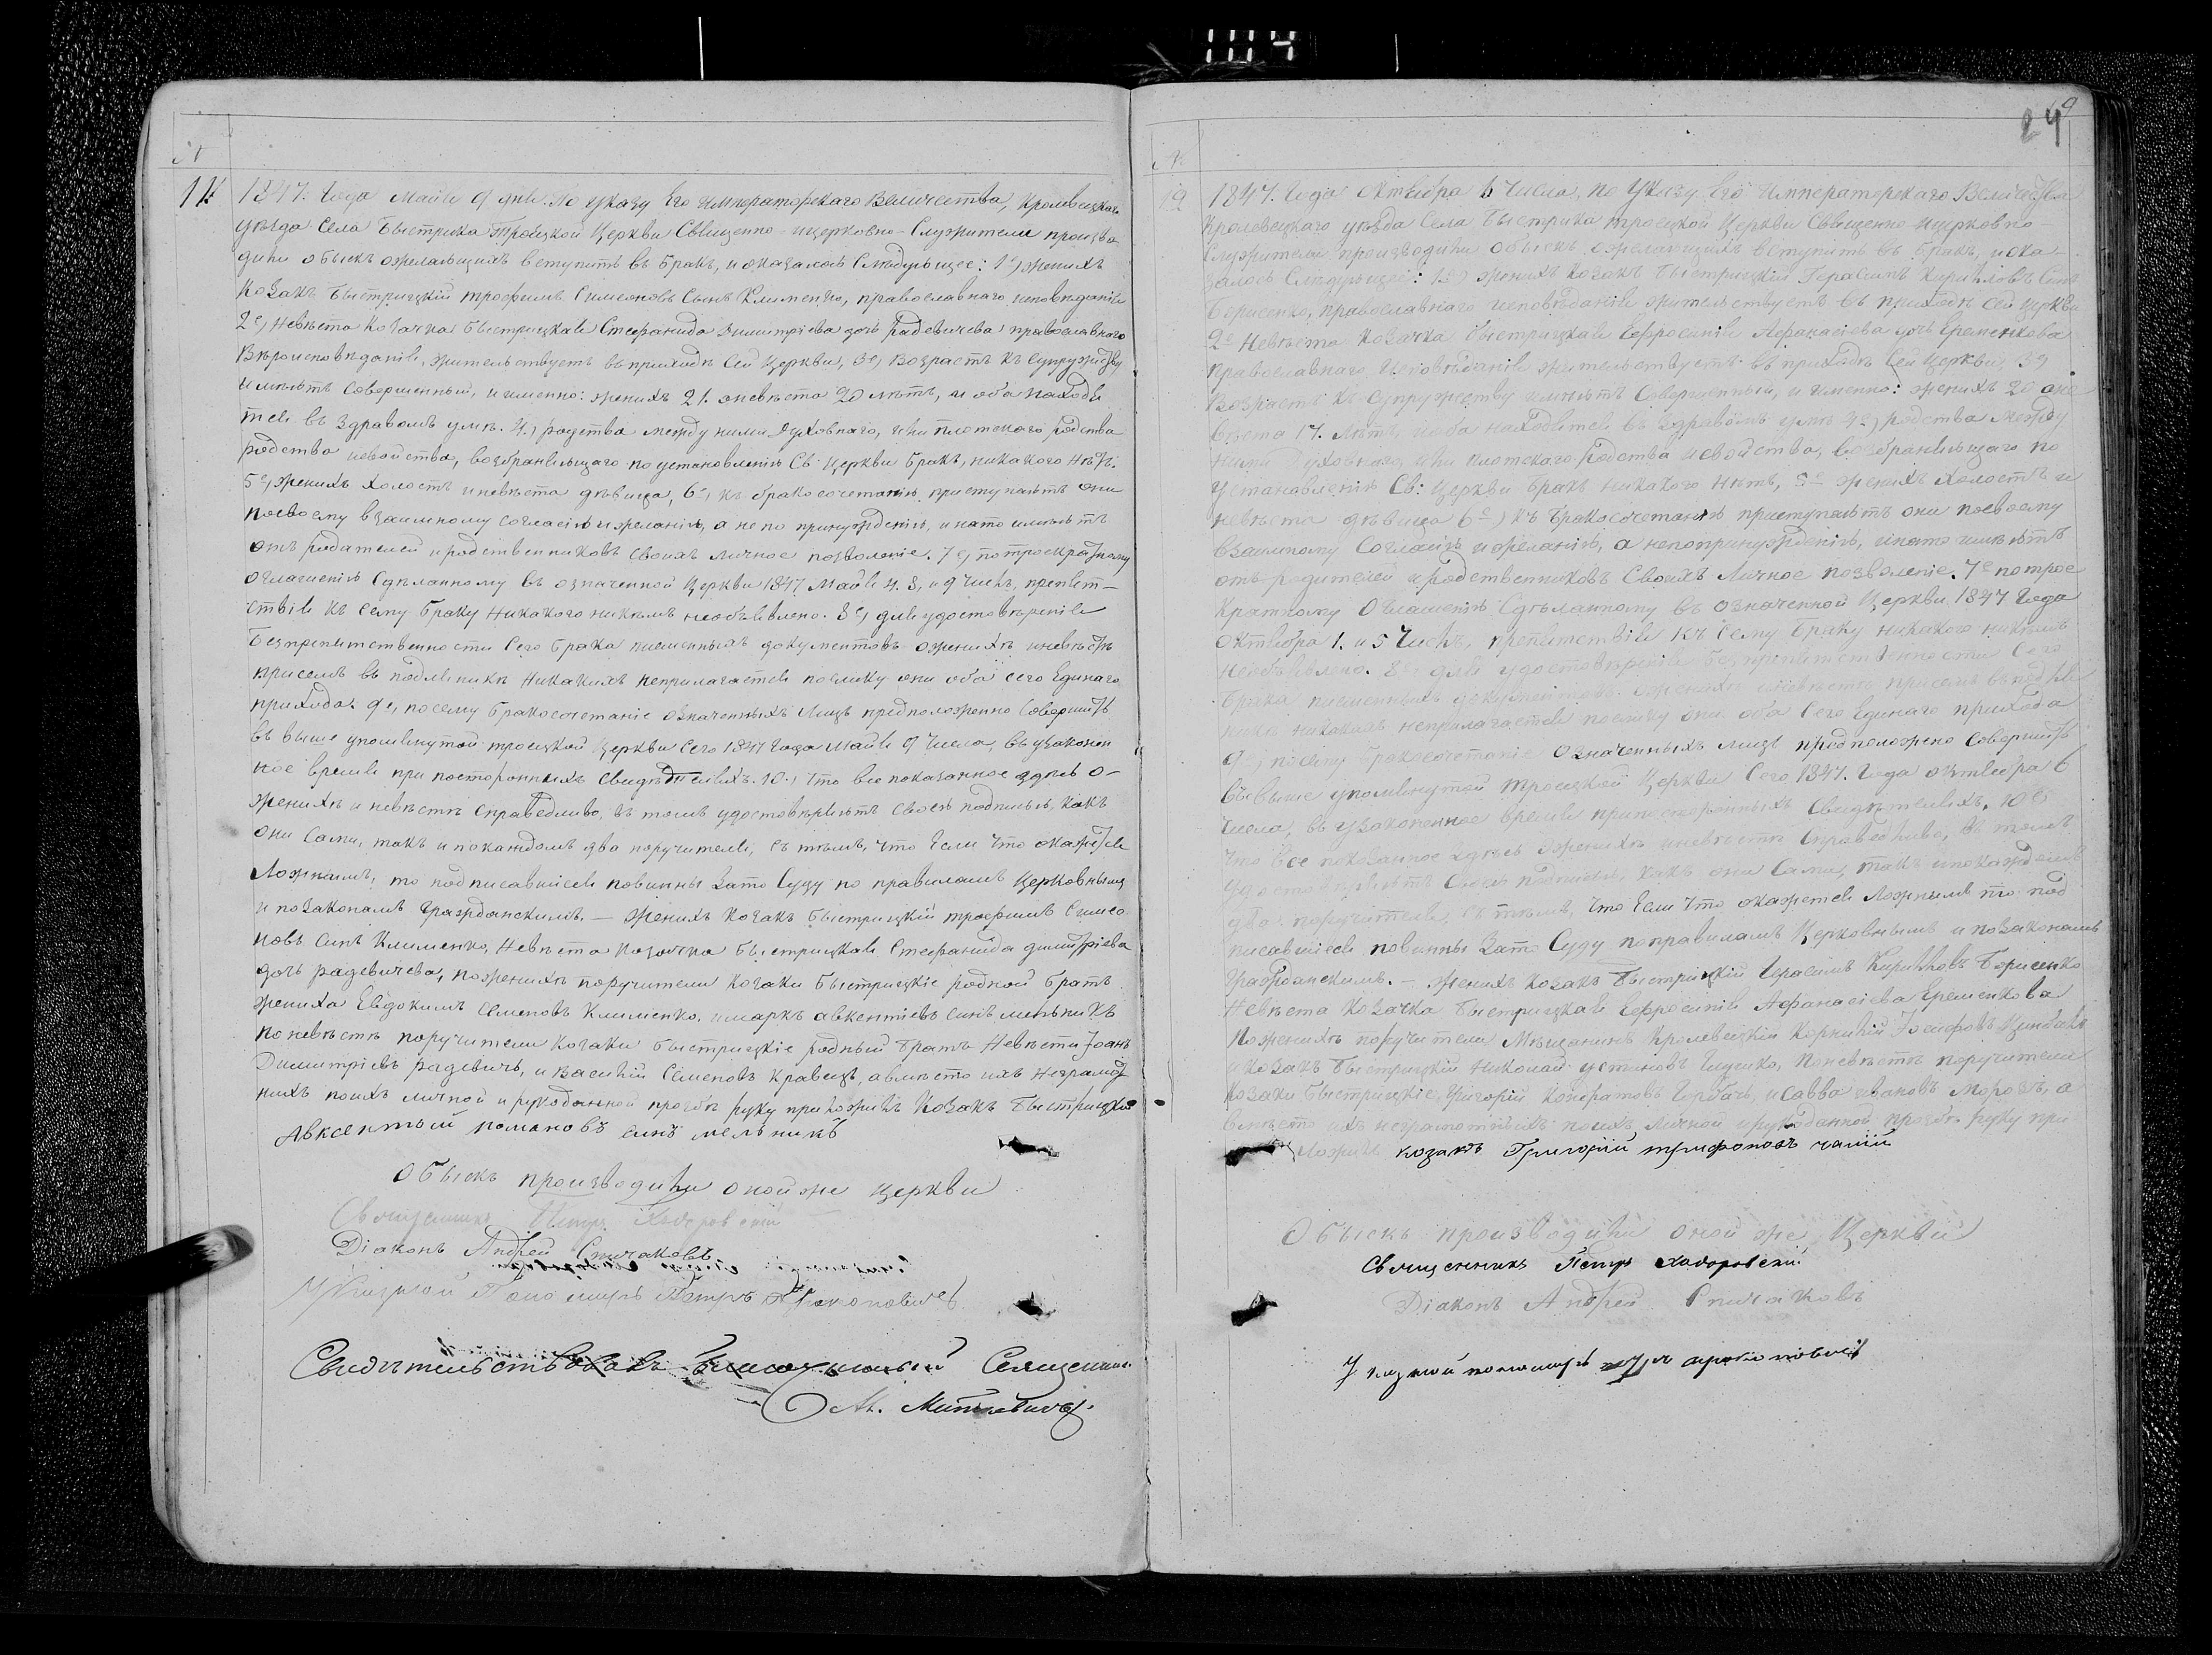 1114
24
№
1847. Года Маія 9 дня. По указу Его Императорскаго Величества, Кролевецкаго
уѣзда села Быстрика Троицкой Церкви Священно-ицерковно-Служители произво
дили обыскъ ожелающихъ вступить въ бракъ, и оказалось Слѣдующее: 1е) женихъ
Козакъ Быстрицкій трофимъ Симеоновъ Сынъ Клименко, православнаго исповѣданія
2е) Невѣста Козачка Быстрицкая Стефанида Димитріева дочь Радевичева православнаго
Вѣроисповѣданія, жительствуетъ въ приходѣ Сей Церкви, 3е) Возрастъ къ супружеству
имѣютъ Совершенный, и именно: женихъ 21. аневѣста 20 лѣтъ, и оба находя
тся въ здравомъ умѣ. 4.) родства между ними духовнаго, или плотскаго родства
родства исвойства, возбраняющаго по установленію Св: Церкви бракъ, никакого нѣтъ.
5е) женихъ холостъ иневѣста дѣвица, 6е) къ бракосочетанію приступаютъ они
посвоему взаимному согласію ижеланію, а не по принужденію, и нато имѣютъ
отъ родителей иродственниковъ своихъ личное позволеніе. 7е) потроекратному
Оглашенію Сдѣланному въ означенной Церкви 1847 Маія 4. 8. и 9 числъ, препят-
ствія къ сему браку никакого никѣмъ необъявлено. 8е) для удостовѣренія
безпрепятственности Сего брака письменныхъ документовъ ожениxѣ иневѣстѣ
присемъ въ подлинникѣ никакихъ неприлагается поелику они оба сего Единаго
прихода. 9е) посему бракосочетаніе означенныхъ Лицъ предположенно Совершить
въ выше упомянутой троицкой Церкви Сего 1847 Года Маія 9 Числа, въ узаконен
ное время при постороннихъ Свидѣтеляхъ. 10.) Что все показанное здѣсь о-
женихѣ и невѣстѣ Справедливо, въ томъ удостовѣряютъ своею подписью, какъ
они Сами, такъ и покаждомъ два поручителя, съ тѣмъ, что Если что окажется
Ложнымъ, то подписавшіеся повинны Зато Суду по правиламъ Церковнымъ
и позаконамъ Гражданскимъ. — Женихъ козакъ быстрицкій трофимъ Симео
новъ Синъ Клименко, Невѣста Козачка Быстрицкая Стефанида димитріева
дочь радевичева, поженихѣ поручители Козаки Быстрицкіе родной братъ
жениха Евдокимъ Семеновъ Клименко, имаркъ авкентіевъ синъ мельникъ
поневѣстѣ поручители Козаки быстрицкіе родный братъ Невѣсти Іоанъ
Димитріевъ радевичъ, и Василій Семеновъ Кравецъ, авмѣсто ихъ Неграмот
нихъ поихъ личной и рукоданной прозбѣ руку приложилъ Козакъ Быстрицкій
Авксентий романовъ синъ мелникъ
Обыскъ производили онойже церкви
Священникъ Петръ Ходоровскій
Діаконъ Андрей Спичаковъ
Указной Пономарь Петръ
Свидѣтельствовалъ Благочинный Священникъ
19
1847. Года Октября 6 Числа, по Указу Его Императорскаго Величества
Кролевецкаго уѣзда Села Быстрика троицкой Церкви Священно-ицерковно-
Служители производили обыскъ ожелающихъ вступить въ бракъ, иока-
залось Слѣдующее: 1е) женихъ Козакъ Быстрицкій Герасимъ Кириловъ Синъ
Борисенко, православнаго исповѣданія жительствуетъ въ приходѣ сей Церкви
2е Невѣста Козачка быстрицкая Ефросинія Афанасіева дочь Еременкова
православнаго исповѣданія жительствуетъ въ приходѣ сей Церкви, 3е)
Возрастъ къ Супружеству имѣютъ Совершенный, и именно: женихъ 20 ане
вѣста 17. Лѣтъ, иоба находятся въ здравомъ умѣ 4е) родства между
ними духовнаго, или плотскаго родства исвойства, возбраняющаго по
установленію Св: Церкви бракъ никакого нѣтъ, 5е женихъ холостъ и
невѣста дѣвица 6е) къ бракосочетанію приступаютъ они посвоему
взаимному Согласію ижеланію, а непопринужденію, инато имѣютъ
отъ родителей иродственниковъ Своихъ Личное позволеніе. 7е потрое
кратному Оглашенію Сдѣланному въ означенной Церкви 1847 Года
Октября 1. и 5 Числъ, препятствія къ сему браку никакого никѣмъ
необъявлено. 8е для удостовѣренія безпрепятственности Сего
брака письменныхъ документовъ ожениxѣ иневѣстѣ присемъ въподли
никѣ никакихъ неприлагается поелику они оба Сего Единаго прихода
9е) посему бракосочетаніе означенныхъ лицъ предположено Совершить
въвыше упомянутой троицкой Церкви Сего 1847. Года октября 6
Числа, въ узаконенное время припостороннихъ Свидѣтеляхъ. 10е
Что все показанное здѣсь оженихѣ иневѣстѣ Справедливо, въ томъ
удостовѣряютъ Своею подписью, какъ они Сами, такъ ипокаждомъ
два поручителя, съ тѣмъ, что Если что окажется Ложнымъ то под
писавшіеся повинны Зато Суду поправиламъ Церковнымъ и позаконамъ
Гражданскимъ. — Женихъ козакъ Быстрицкій Герасимъ Кириловъ Борисенко
Невѣста Козачка Быстрицкая Ефросинія Афанасіева Еременкова
Поженихѣ поручители Мѣщанинъ Кролевецкій Корнилій Іосифовъ
и козакъ Быстрицкій Николай устиновъ поневѣстѣ поручители
Козаки быстрицкіе, Григорій Горбачъ, иСавва ивановъ Морозъ, а
вмѣсто ихъ неграмотныхъ поихъ личной ирукоданной прозбѣ руку при
ложилъ козакъ Григорий трифоновъ
Обыскъ производили оной же Церкви
Священникъ Петръ Ходоровскій
Діаконъ Андрей Спичаковъ
Указной пономарь